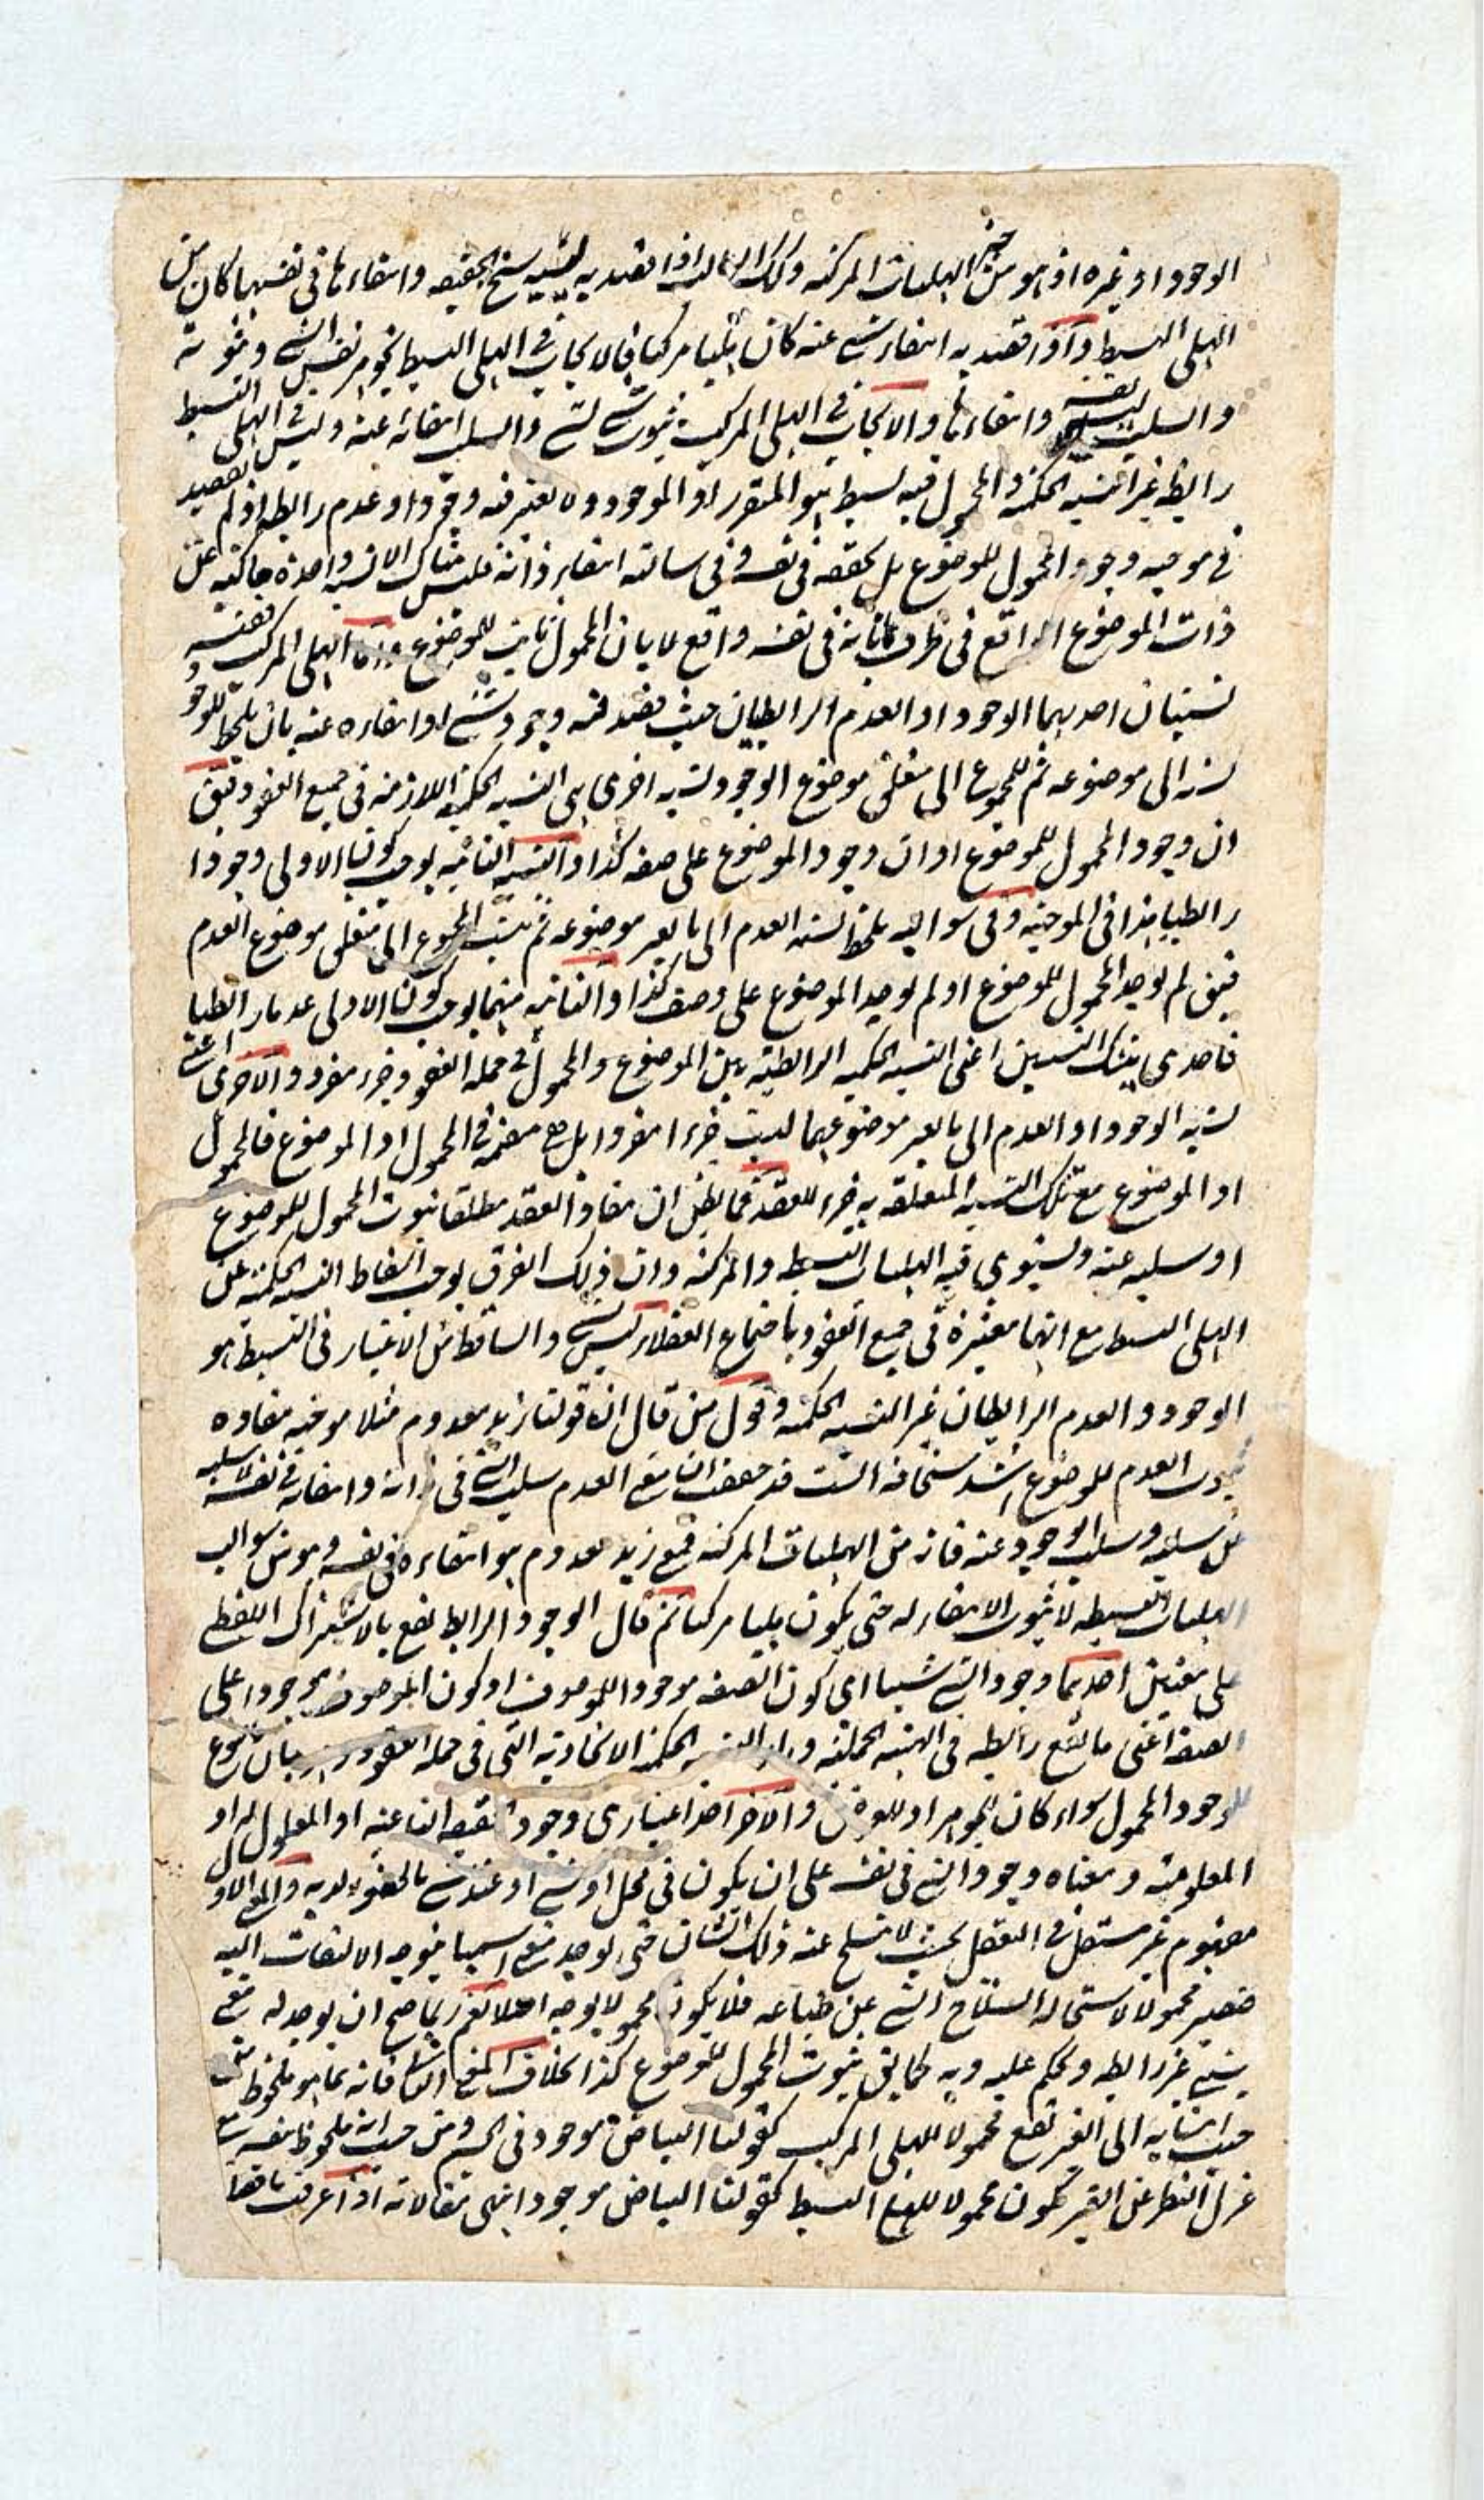 الوجود او غيره اذ هو من حيز الهليات المركبة وكذلك السالب اذا قصد به ليسية سنخ الحقيقة وانتفاءها في نفسها كان من
الهلي البسيط واذا قصد به انتفاء شيء عنه كان هليا مركبا فالايجاب في الهلي البسيط تجوهر نفس الشيء وثبوته
والسلب ليسيته نفسه وانتفاءها والايجاب في الهلي المركب ثبوت شيء لشيء والسلب انتفائه عنه وليس في الهلي البسيط
رابطة غير النسبة الحكمية والمحمول فيه بسيط هو المتقرر او الموجود ولا يعتبر فيه وجود او عدم رابط اذ لم يقصد
في موجبه وجود المحمول للموضوع بل تحققه في نفسه وفي سالبته انتفاء ذاته فليس هناك الا نسبة واحدة حاكية عن
ذات الموضوع الواقع في ظرف ما بانه في نفسه واقع لا بان المحمول ثابت للموضوع واما الهلي المركب ففيه
نسبتان احديهما الوجود او العدم الرابطيان حيث يقصد فيه وجود شيء لشيء او انتفاءه عنه بان يلحظ للوجود
نسبة الى موضوعه ثم للمجموع الى متعلق موضوع الوجود نسبة اخرى هي النسبة الحكمية اللازمة في جميع العقود فيق
ان وجود المحمول للموضوع او ان وجود الموضوع على صفة كذا والنسبة الثانية يوجب كون الاولى وجودا
رابطيا هذا في الموجبة وفي سوالبه يلحظ نسبة العدم الى ما يعبر موضوعه ثم ينسب المجموع الى متعلق موضوع العدم
فيق لم يوجد المحمول للموضوع او لم يوجد الموضوع على وصف كذا والثانية منهما يوجب كون الاولى عدما رابطيا
فاحدى هاتيك النسبتين اعني النسبة الحكمية الرابطية بين الموضوع والمحمول في جملة العقود جزء مفرد والاخرى اعني
نسبة الوجود او العدم الى ما يعبر موضوعهما ليست جزءا مفردا بل هي مضمنة في المحمول او الموضوع فالمحمول
او الموضوع مع تلك النسبة المتعلقة به جزء للعقد فما يظن ان مفاد العقد مطلقا ثبوت المحمول للموضوع
او سلبه عنه ويستوي فيه الهليات البسيطة والمركبة وان ذلك الفرق يوجب اسقاط النسبة الحكمية عن
الهلي البسيط مع انها معتبرة في جميع العقود باجماع العقلاء ليس بشيء والساقط من الاعتبار في البسيط هو
الوجود والعدم الرابطان غير النسبة الحكمية وقول من قال ان قولنا زيد معدوم مثلا موجبة مفاده
ثبوت العدم للموضوع اشد سخافة الست قد حققت ان معنى العدم سلب الشيء في ذاته وانتفائه في نفسه لا سلبه
عن سلبه وسلب الوجود عنه فانه من الهليات المركبة فمعنى زيد معدوم هو انتفاءه في نفسه وهو من سوالب
الهليات البسيطة لا ثبوت الانتفاء له حتى يكون هليا مركبا ثم قال الوجود الرابط يقع بالاشتراك اللفظي
على معنيين احدهما وجود الشيء شيئا اي كون الصفة موجودا للموصوف او كون الموصوف موجودا على
الصفة اعني ما يقع رابطة في الهلية الحملية وراء النسبة الحكمية الاتحادية التي في جملة العقود
للوجود المحمول سواء كان للجوهر او للعرض والآخر احد اعتباري وجود الحقيقة الناعتية او المعلول له او
المعلومية ومعناه وجود الشيء في نفسه على ان يكون في محل او شيء او عند شيء بالحضور لديه والمعنى الاول
مفهوم غير مستقل في التعقل بحيث لا ينسلخ عنه ذلك الشان حتى يوجد معنى اسميا فيوجه الالتفات اليه
فيصير محمولا لاستحالة انسلاخ الشيء عن طباعه فلا يكون محمولا بوجه اصلا نعم ربما صح ان يوجد له معنى
نسبي غير رابطة ويحكم عليه وبه كما يق ثبوت المحمول للموضوع كذا بخلاف المعنى الثاني فانه بما هو ملحوظ من
حيث انتسابه الى الغير تقع محمولا للهلي المركب كقولنا البياض موجود في الجسم ومن حيث انه ملحوظ بنفسه مع
عزل النظر عن الغير تكون محمولا للهلي البسيط كقولنا البياض موجود انتهى مقالاته اذا عرفت